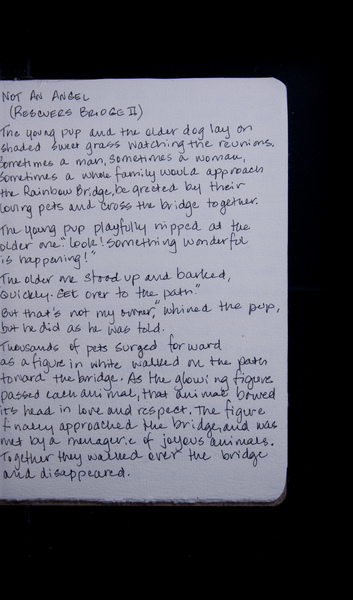 NOT AN ANGEL
(RESCUERS BRIDGE II)
The young pup and the older dog lay on
shaded sweet grass watching the reunions.
Sometimes a man, sometimes a woman,
sometimes a whole family would approach
the Rainbow Bridge, be greeted by their
loving pets and cross the bridge together.
The young pup playfully nipped at the
older one. "Look! Something wonderful
is happening!"
The older one stood up and barked,
Quickly. Get over to the path."
But that's not my owner," whined the pup,
but he did as he was told.
Thousands of pets surged forward
as a figure in white walked on the path
toward the bridge. As the glowing figure
passed each animal, that animal bowed
its head in love and respect. The figure
finally approached the bridge, and was
met by a menagerie of joyous animals.
Together they walked over the bridge
and disappeared.